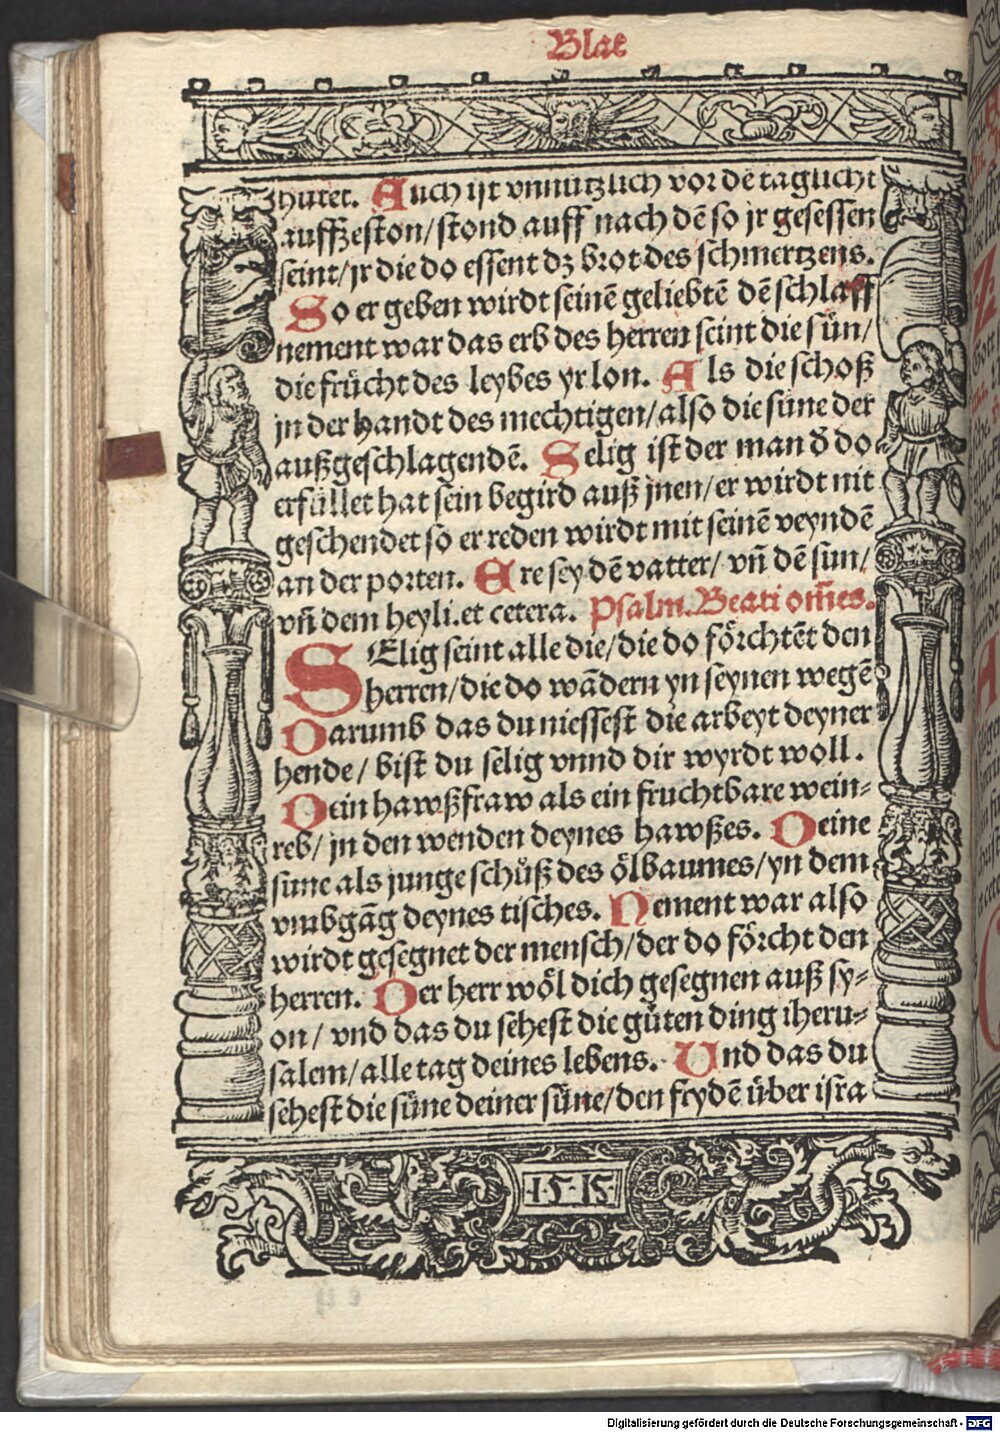 Blat
hütet. Auch ist vnnutzlich vor dē taglicht
auffzeston/ stond auff nach dē so jr gesessen
seint/ jr die do essent dz brot des schmertzens.
So er geben wirdt seinē geliebtē dē schlaff
nement war das erb des herren seint die sün/
die frücht des leybes yr lon. Als die schoß
jn der handt des mechtigen/ also die süne der
außgeschlagendē. Selig ist der man d̄ do
erfüllet hat sein begird auß jnen/ er wirdt nit
geschendet so er reden wirdt mit seinē veyndē
an der porten. Ere sey dē vatter/ vn̄ dē sun/
vn̄ dem heyli. et cetera. Psalm. Beati om̄es.
SElig seint alle die/ die do förchtēt den
herren/ die do wādern yn seynen wegē
Darumb das du niessest die arbeyt deyner
hende/ bist du selig vnnd dir wyrdt woll.
Dein hawßfraw als ein fruchtbare wein=
reb/ jn den wenden deynes hawßes. Deine
süne als junge schůß des ölbaumes/ yn dem
vmbgāg deynes tisches. Nement war also
wirdt gesegnet der mensch/ der do förcht den
herren. Der herr wöl dich gesegnen auß sy=
on/ vnd das du sehest die güten ding iheru=
salem/ alle tag deines lebens. Vnd das du
sehest die süne deiner süne/ den frydē über isr̄a
1515
Digitalisierung gefördert durch die Deutsche Forschungsgemeinschaft - DFG